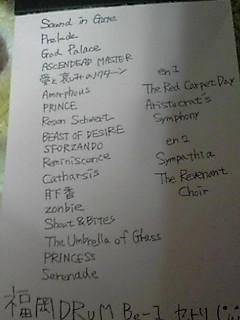 Sound in Gate
Prelude
God Palace
ASCENDEAD MASTER
愛と哀しみのノクターン
Amorphous
PRINCE
Rosen Schwarz
BEAST OF DESIRE
SFORZANDO
Reminiscence
Catharsis
月下香
zombie
Shout & Bites
The Umbrella of Glass
PRINCESS
Serenade
en1
The Red Carpet Day
Aristocrat's
Symphony
en2
Sympathia
The Revenant
Choir
福岡DRUM Be-1 セトリ